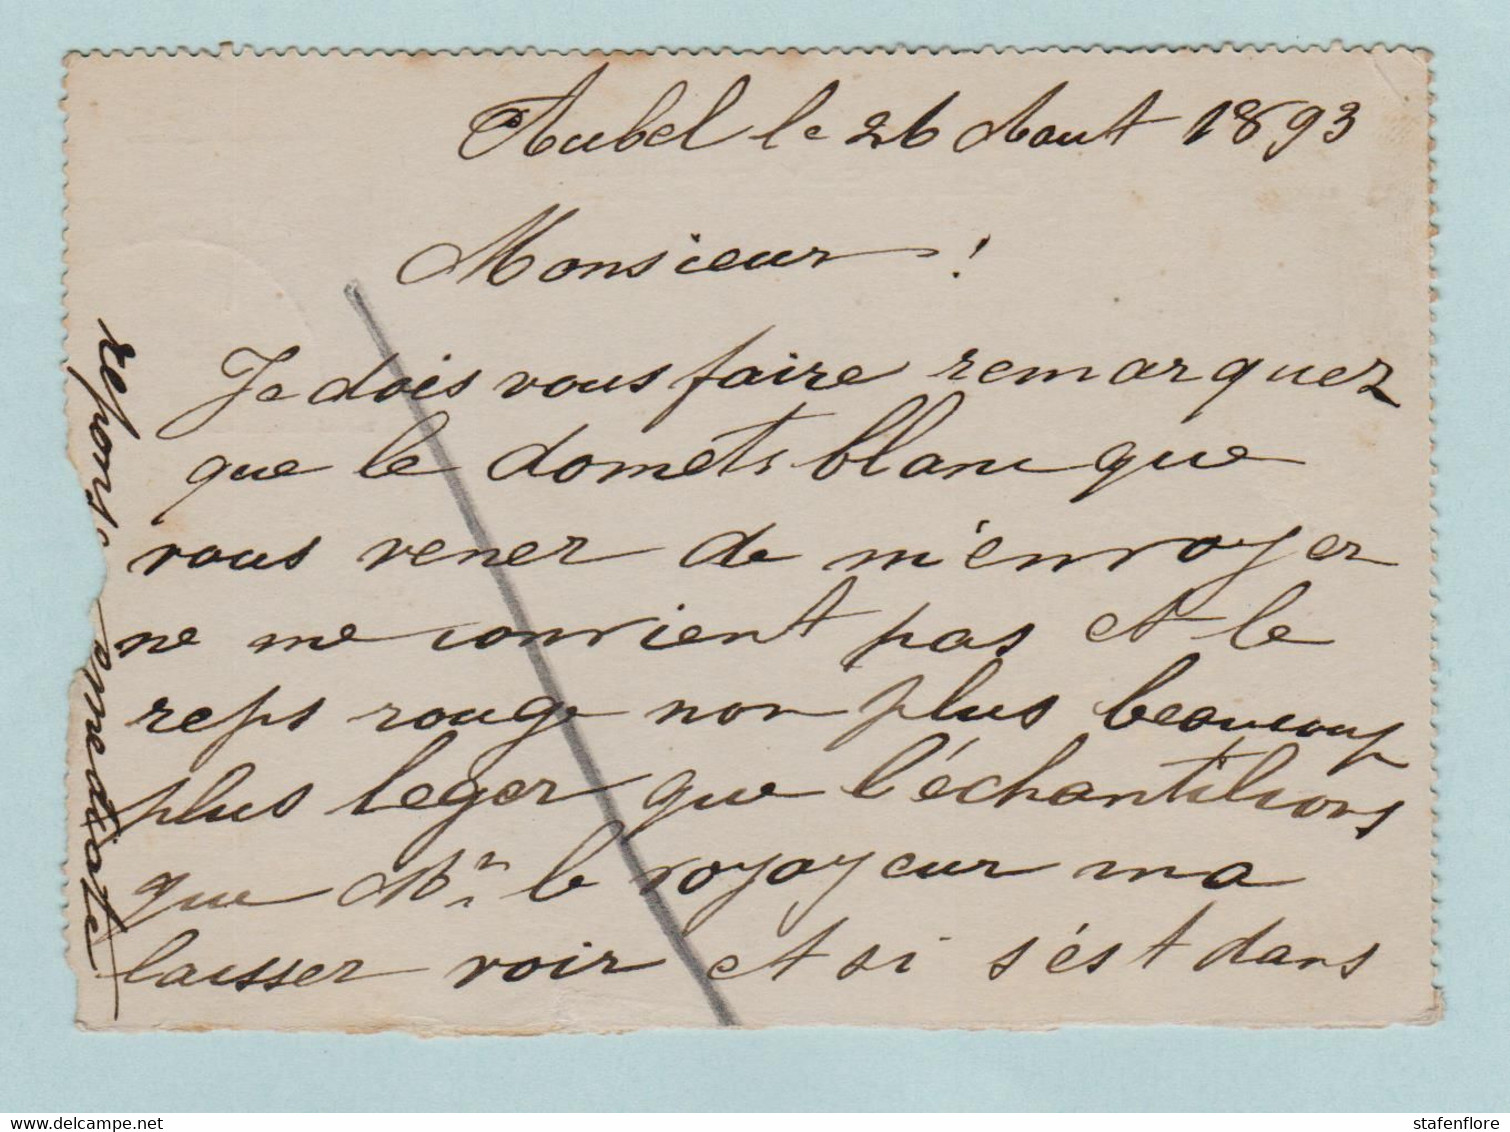 Aubel le 26 Aout 1893
Monsieur !
Je dois vous faire remarquez
que le domets blanc que
vous vener de m'envoyer
ne me convient pas et le
reps rouge non plus beaucoup
plus leger que l'échantilions
que Mr le voyayeur ma
laisser voir et si s'ést dans
stafenflore